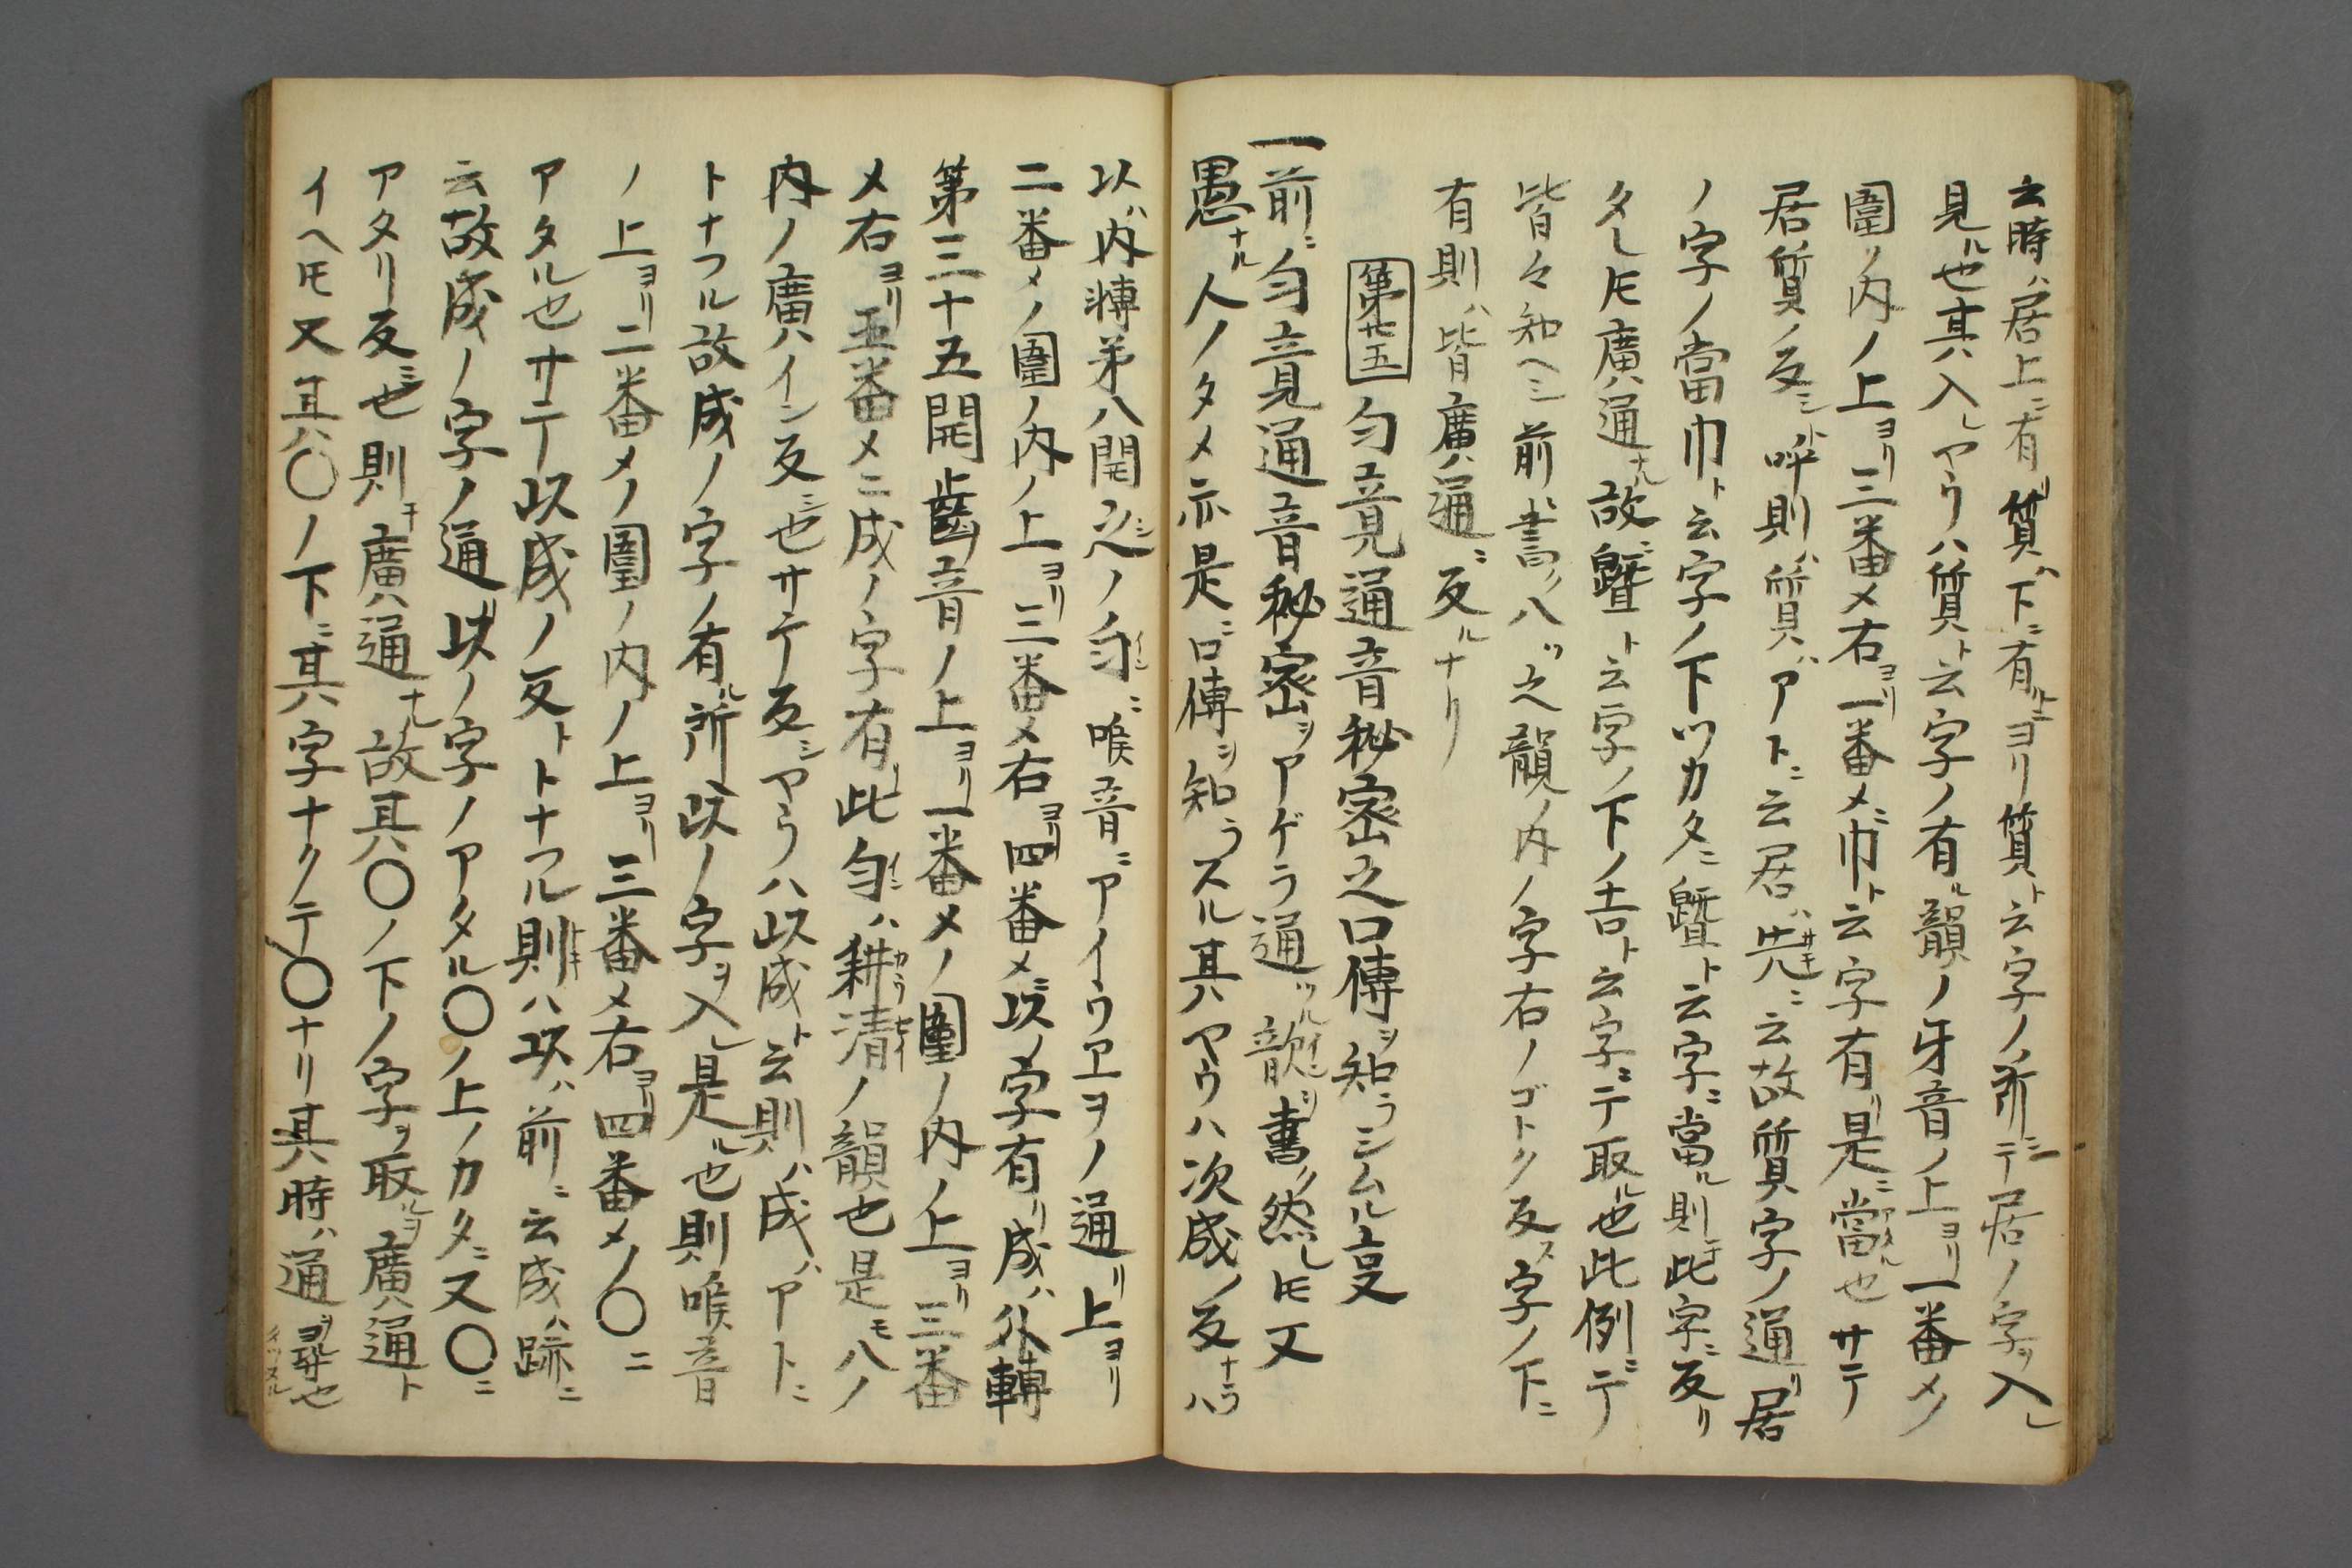 云時ハ居上ニ有リ質ハ下ニ有ルトニヨリ質ト云字ノ所ニテ居ノ字ヲ入レ
見ル也其入レヤウハ質ト云字ノ有ル韻ノ牙音ノ上ヨリ一番メノ
圍ノ内ノ上ヨリ三番メ右ヨリ一番メニ巾ト云字有リ是ニ當ル也サテ
居質ノ反シト呼則ハ質ハアトニ云居ハ先ニ云故質ノ字ノ通リ居
ノ字ノ當巾ト云字ノ下ツカタニ曁ト云字ニ當ル則チ此字ニ反リ
タレ𪜈廣通ナル故ニ曁ト云字ノ下ノ吉ト云字ニテ取ル也此例ニテ
皆々知ヘシ前ニ書ク八ツ之韻ノ内ノ字右ノゴトク反ス字ノ下ニ
有則ハ皆廣通ニ反ルナリ
第廿五 匀竟通音秘密之口傳ヲ知ラシムル㕝
一前ニ匀竟通音秘密ヲアゲラ通ツル韻ヲ書ク然レ𪜈又
愚ナル人ノタメ示是ニ口傳ヲ知ラスル其ヤウハ次成ノ反ナラハ
以ハ内轉第八開之シノ匀ニ喉音ニアイウヱヲノ通リ上ヨリ
二番メノ圍ノ内ノ上ヨリ三番メ右ヨリ四番メニ以ノ字有リ成ハ外轉
第三十五開齒音ノ上ヨリ一番メノ圍ノ内ノ上ヨリ三番
メ右ヨリ五番メニ成ノ字有リ此匀ハ耕清ノ韻也是モ八ノ
内ノ廣ハイン反シ也サテ反シヤウハ以成ト云則ハ成ハアトニ
トナフル故成ノ字ノ有ル所ヘ以ノ字ヲ入レ是ル也則喉音
ノ上ヨリ二番メノ圍ノ内ノ上ヨリ三番メ右ヨリ四番メノ〇ニ
アタル也サテ以成ノ反トトナフル則ハ以ハ前ニ云成ハ跡ニ
云故成ノ字ノ通リ以ノ字ノアタル〇ノ上ノカタニ又〇ニ
アタリ反ル也則チ廣通ナル故其〇ノ下ノ字ヲ取ルヲ廣通ト
イヘ𪜈又其〇ノ下ニ其字ナクテ〇ナリ其時ハ通ヲ尋也